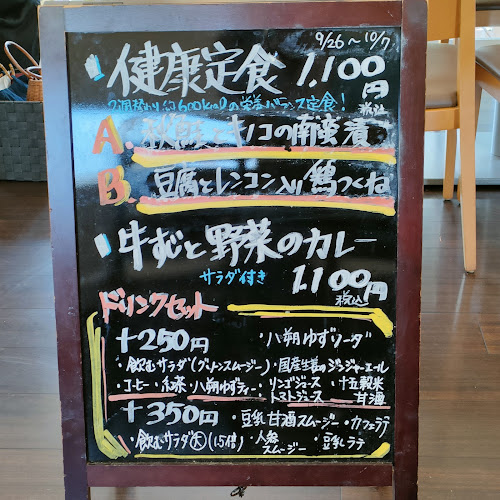 9/26〜10/7
健康定食 1,100円 税込
2週替わり 約600kcalの栄養バランス定食！
A. 秋鮭とキノコの南蛮漬
B. 豆腐とレンコン入り鶏つくね
牛すじと野菜のカレー
サラダ付き 1,100円 税込
ドリンクセット
+250円 八朔ゆずソーダ
・飲むサラダ(グリーンスムージー)・国産生姜のジンジャーエール
・コーヒー・紅茶・八朔ゆずティー・リンゴジュース・十五穀米
トマトジュース 甘酒
+350円 ・豆乳甘酒スムージー・カフェラテ
・飲むサラダ(大)(1.5倍)・人参スムージー・豆乳ラテ